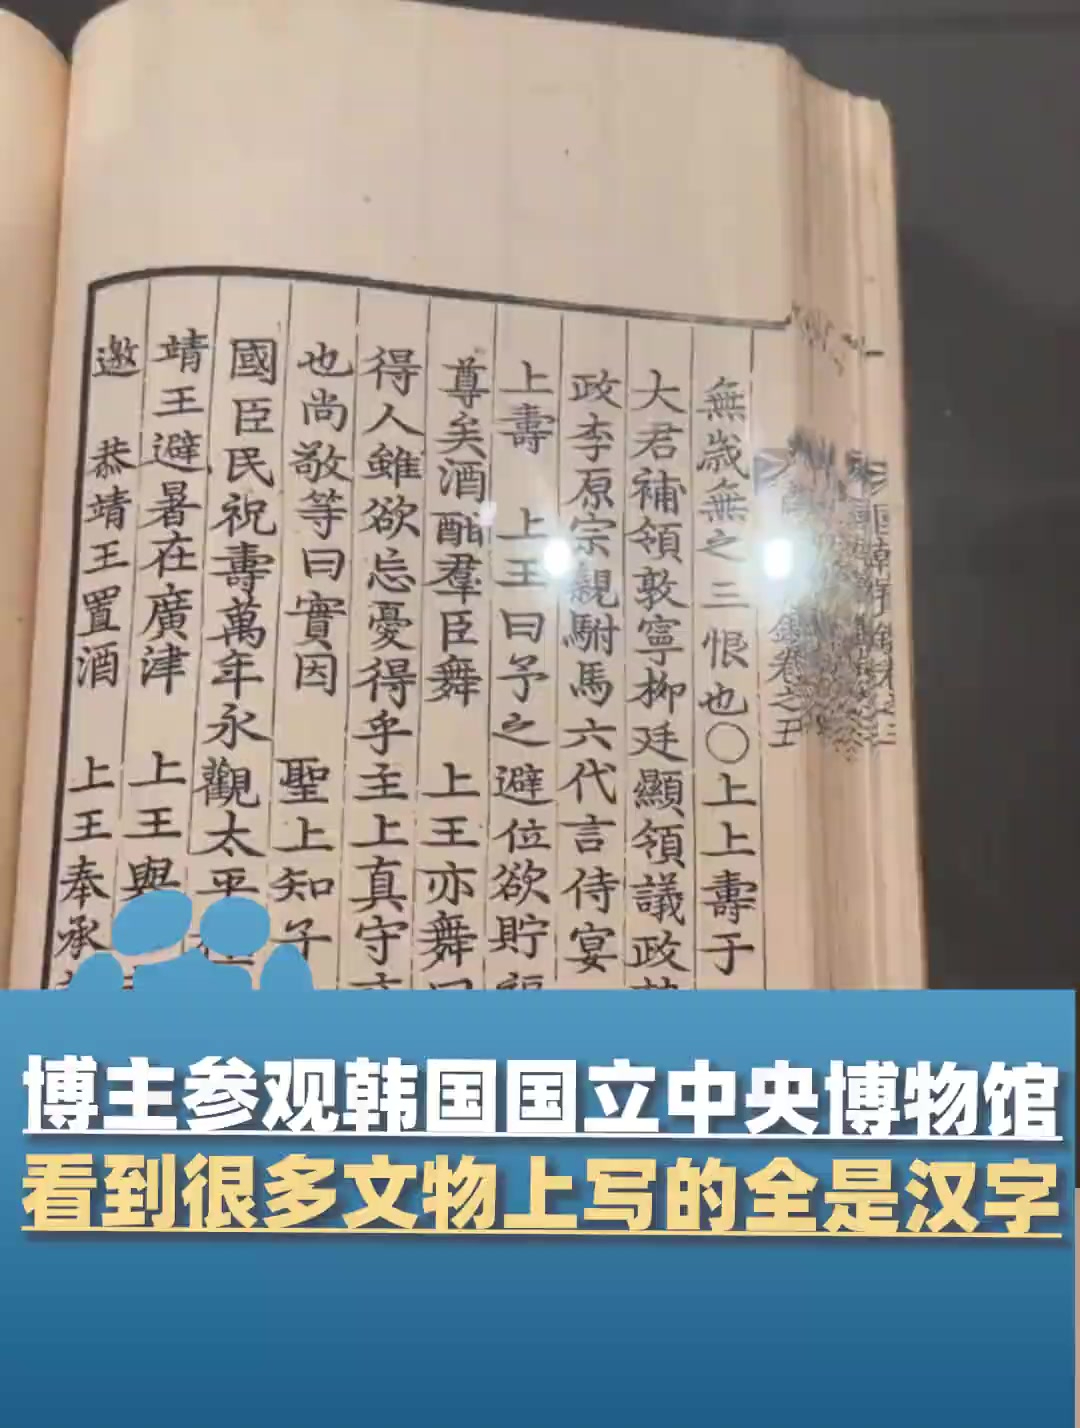 無歳無之三恨也○上上壽于
大君補領敦寧柳廷顯領議政
政李原宗親駙馬六代言侍宴
上壽 上王曰予之避位欲貯福
尊矣酒酣羣臣舞 上王亦舞曰
得人雖欲忘憂得乎主上真守
也尚敬等曰實因 聖上知子
國臣民祝壽萬年永觀太平
靖王避暑在廣津 上王與
邀 恭靖王置酒 上王奉承
博主参观韩国国立中央博物馆
看到很多文物上写的全是汉字